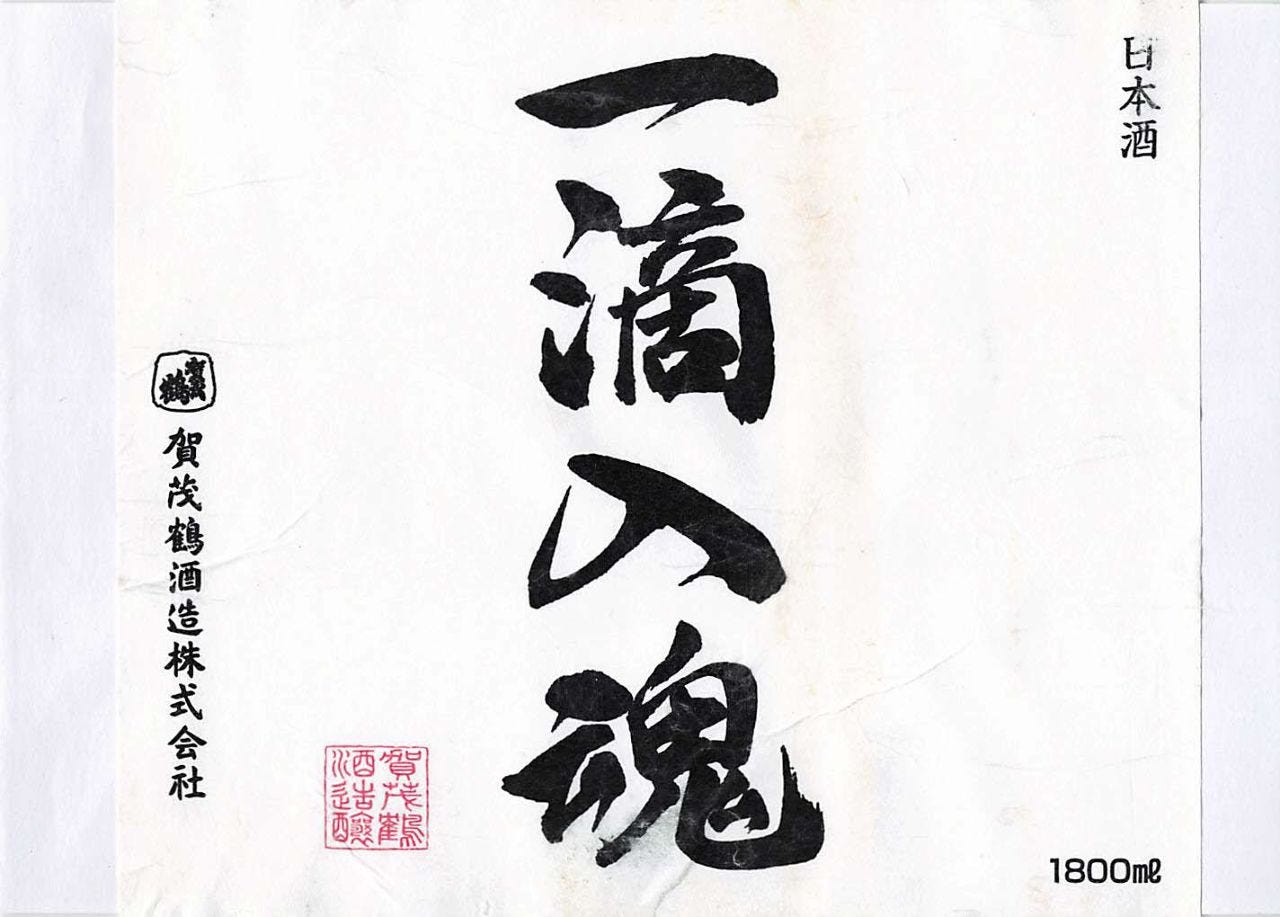 日本酒
一滴入魂
賀茂鶴
賀茂鶴酒造株式会社
賀茂鶴
酒造醸
1800㎖